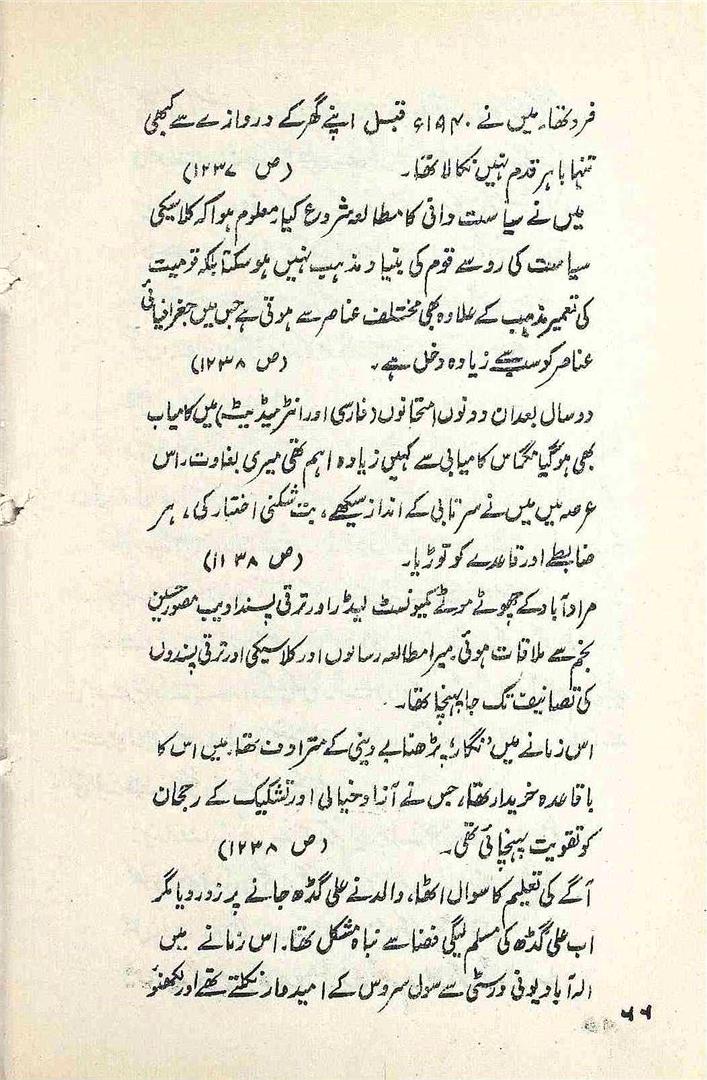 فرد تھا۔ میں نے ۱۹۴۰ء قبل اپنے گھر کے دروازے سے کبھی
تنہا باہر قدم نہیں نکالا تھا۔ (ص ۱۲۳۷)
میں نے سیاست دانی کا مطالعہ شروع کیا۔ معلوم ہوا کہ کلاسیکی
سیاست کی رو سے قوم کی بنیاد مذہب نہیں ہو سکتا بلکہ قومیت
کی تعمیر مذہب کے علاوہ بھی مختلف عناصر سے ہوتی ہے جس میں جغرافیائی
عناصر کو سب سے زیادہ دخل ہے۔ (ص ۱۲۳۸)
دو سال بعد ان دونوں امتحانوں (فارسی اور انٹرمیڈیٹ) میں کامیاب
بھی ہو گیا مگر اس کامیابی سے کہیں زیادہ اہم تھی میری بغاوت۔ اس
عرصہ میں میں نے سرتابی کے انداز سیکھے، بت شکنی اختیار کی، ہر
ضابطے اور قاعدے کو توڑ پایا۔ (ص ۱۱۳۸)
مرادآباد کے چھوٹے موٹے کمیونسٹ لیڈر اور ترقی پسند ادیب منصور حسین
نجم سے ملاقات ہوئی۔ میرا مطالعہ رسالوں اور کلاسیکی اور ترقی پسندوں
کی تصانیف تک جا پہنچا تھا۔
اس زمانے میں 'نگار' پڑھنا بے دینی کے مترادف تھا۔ میں اس کا
باقاعدہ خریدار تھا، جس نے آزاد خیالی اور تشکیک کے رجحان
کو تقویت پہنچائی تھی۔ (ص ۱۲۳۸)
آگے کی تعلیم کا سوال اٹھا، والد نے علی گڈھ جانے پر زور دیا مگر
اب علی گڈھ کی مسلم لیگی فضا سے نباہ مشکل تھا۔ اس زمانے میں
الہ آباد یونی ورسٹی سے سول سروس کے امیدوار نکلتے تھے اور لکھنؤ
۶۶